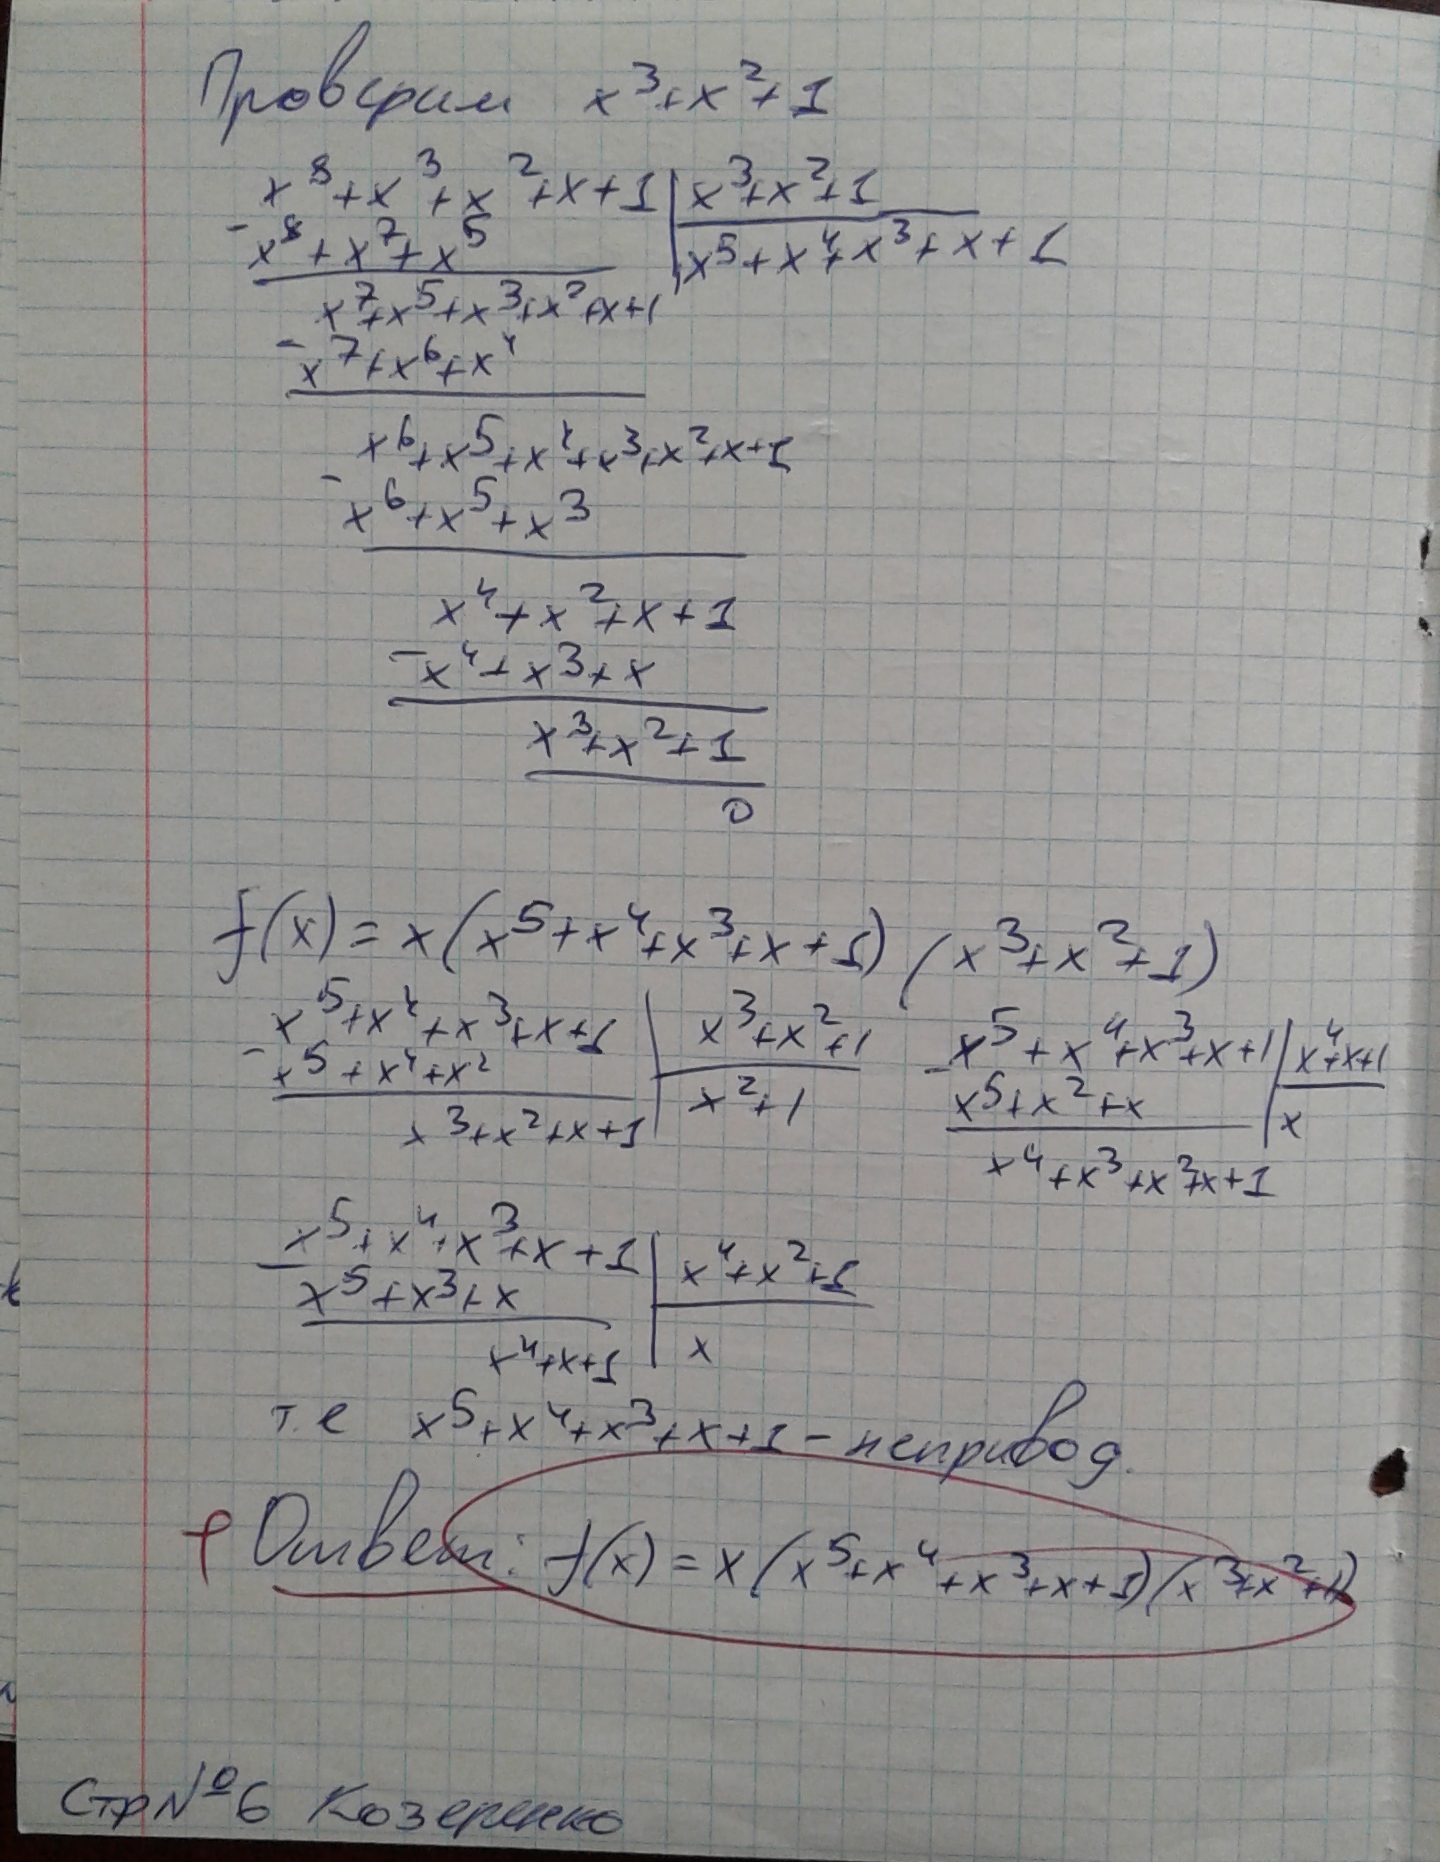 Проверим x³+x²+1
x⁸+x³+x²+x+1 | x³+x²+1
- x⁸+x⁷+x⁵ | x⁵+x⁴+x³+x+1
x⁷+x⁵+x³+x²+x+1
- x⁷+x⁶+x⁴
x⁶+x⁵+x⁴+x³+x²+x+1
- x⁶+x⁵+x³
x⁴+x²+x+1
- x⁴+x³+x
x³+x²+1
0
f(x) = x(x⁵+x⁴+x³+x+1)(x³+x²+1)
x⁵+x⁴+x³+x+1 | x³+x²+1
- x⁵+x⁴+x² | x²+1
x³+x²+x+1
x⁵+x⁴+x³+x+1 | x⁴+x+1
- x⁵+x²+x | x
x⁴+x³+x²+x+1
x⁵+x⁴+x³+x+1 | x⁴+x²+1
- x⁵+x³+x | x
x⁴+x+1
т.е x⁵+x⁴+x³+x+1 - непривод.
+ Ответ: f(x) = x(x⁵+x⁴+x³+x+1)(x³+x²+1)
Стр №6 Козеренко